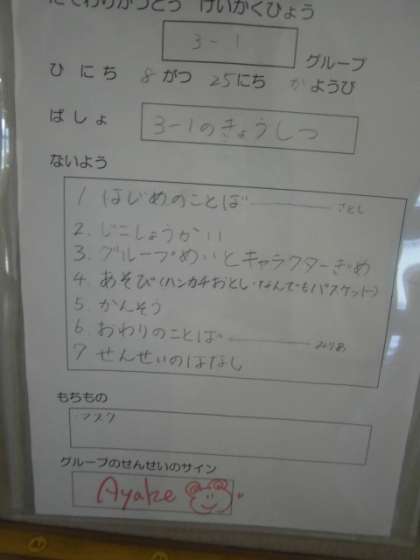 たてわりかつどう けいかくひょう
3-1
グループ
ひにち 8がつ 25にち かようび
ばしょ
3-1のきょうしつ
ないよう
1 はじめのことば――さとし
2. じこしょうかい
3. グループめいとキャラクターぎめ
4. あそび(ハンカチおとし・なんでもバスケット)
5. かんそう
6. おわりのことば――みりあ
7 せんせいのはなし
もちもの
・マスク
グループのせんせいのサイン
Ayake